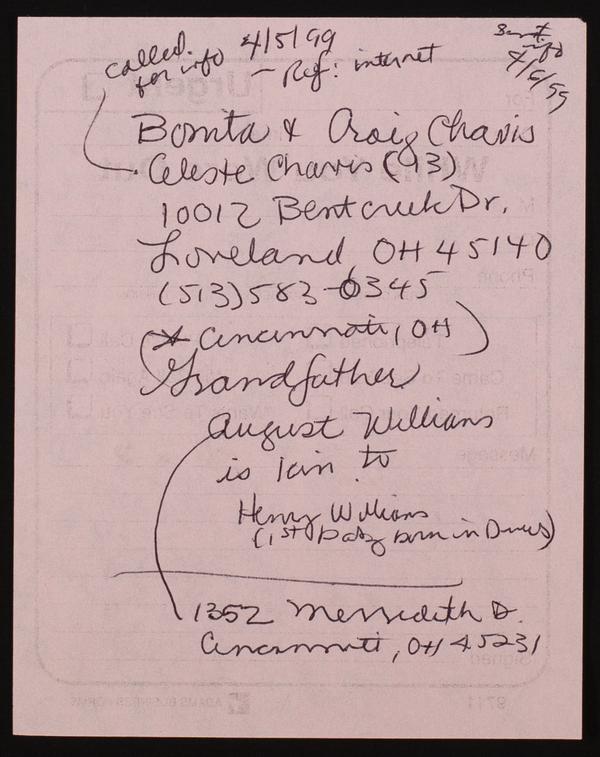 called. 4/5/99
for info - Ref: internet
Sent.
info
4/6/99
Bonita & Craig Chavis
Celeste Chavis (93)
10012 Bentcreek Dr.
Loveland, OH 45140
(513) 583-0345
(* Cincinnati, OH)
Grandfather
August Williams
is kin to
Henry Williams
(1st baby born in Dines)
1352 Merredeth D.
Cincinnati, OH 45231
Urgent
For
While You Were Out
M
Phone
Telephoned
Call
Came To
Again
Wants To See You
Message
Signed
ADAMS BUSINESS FORMS
9711